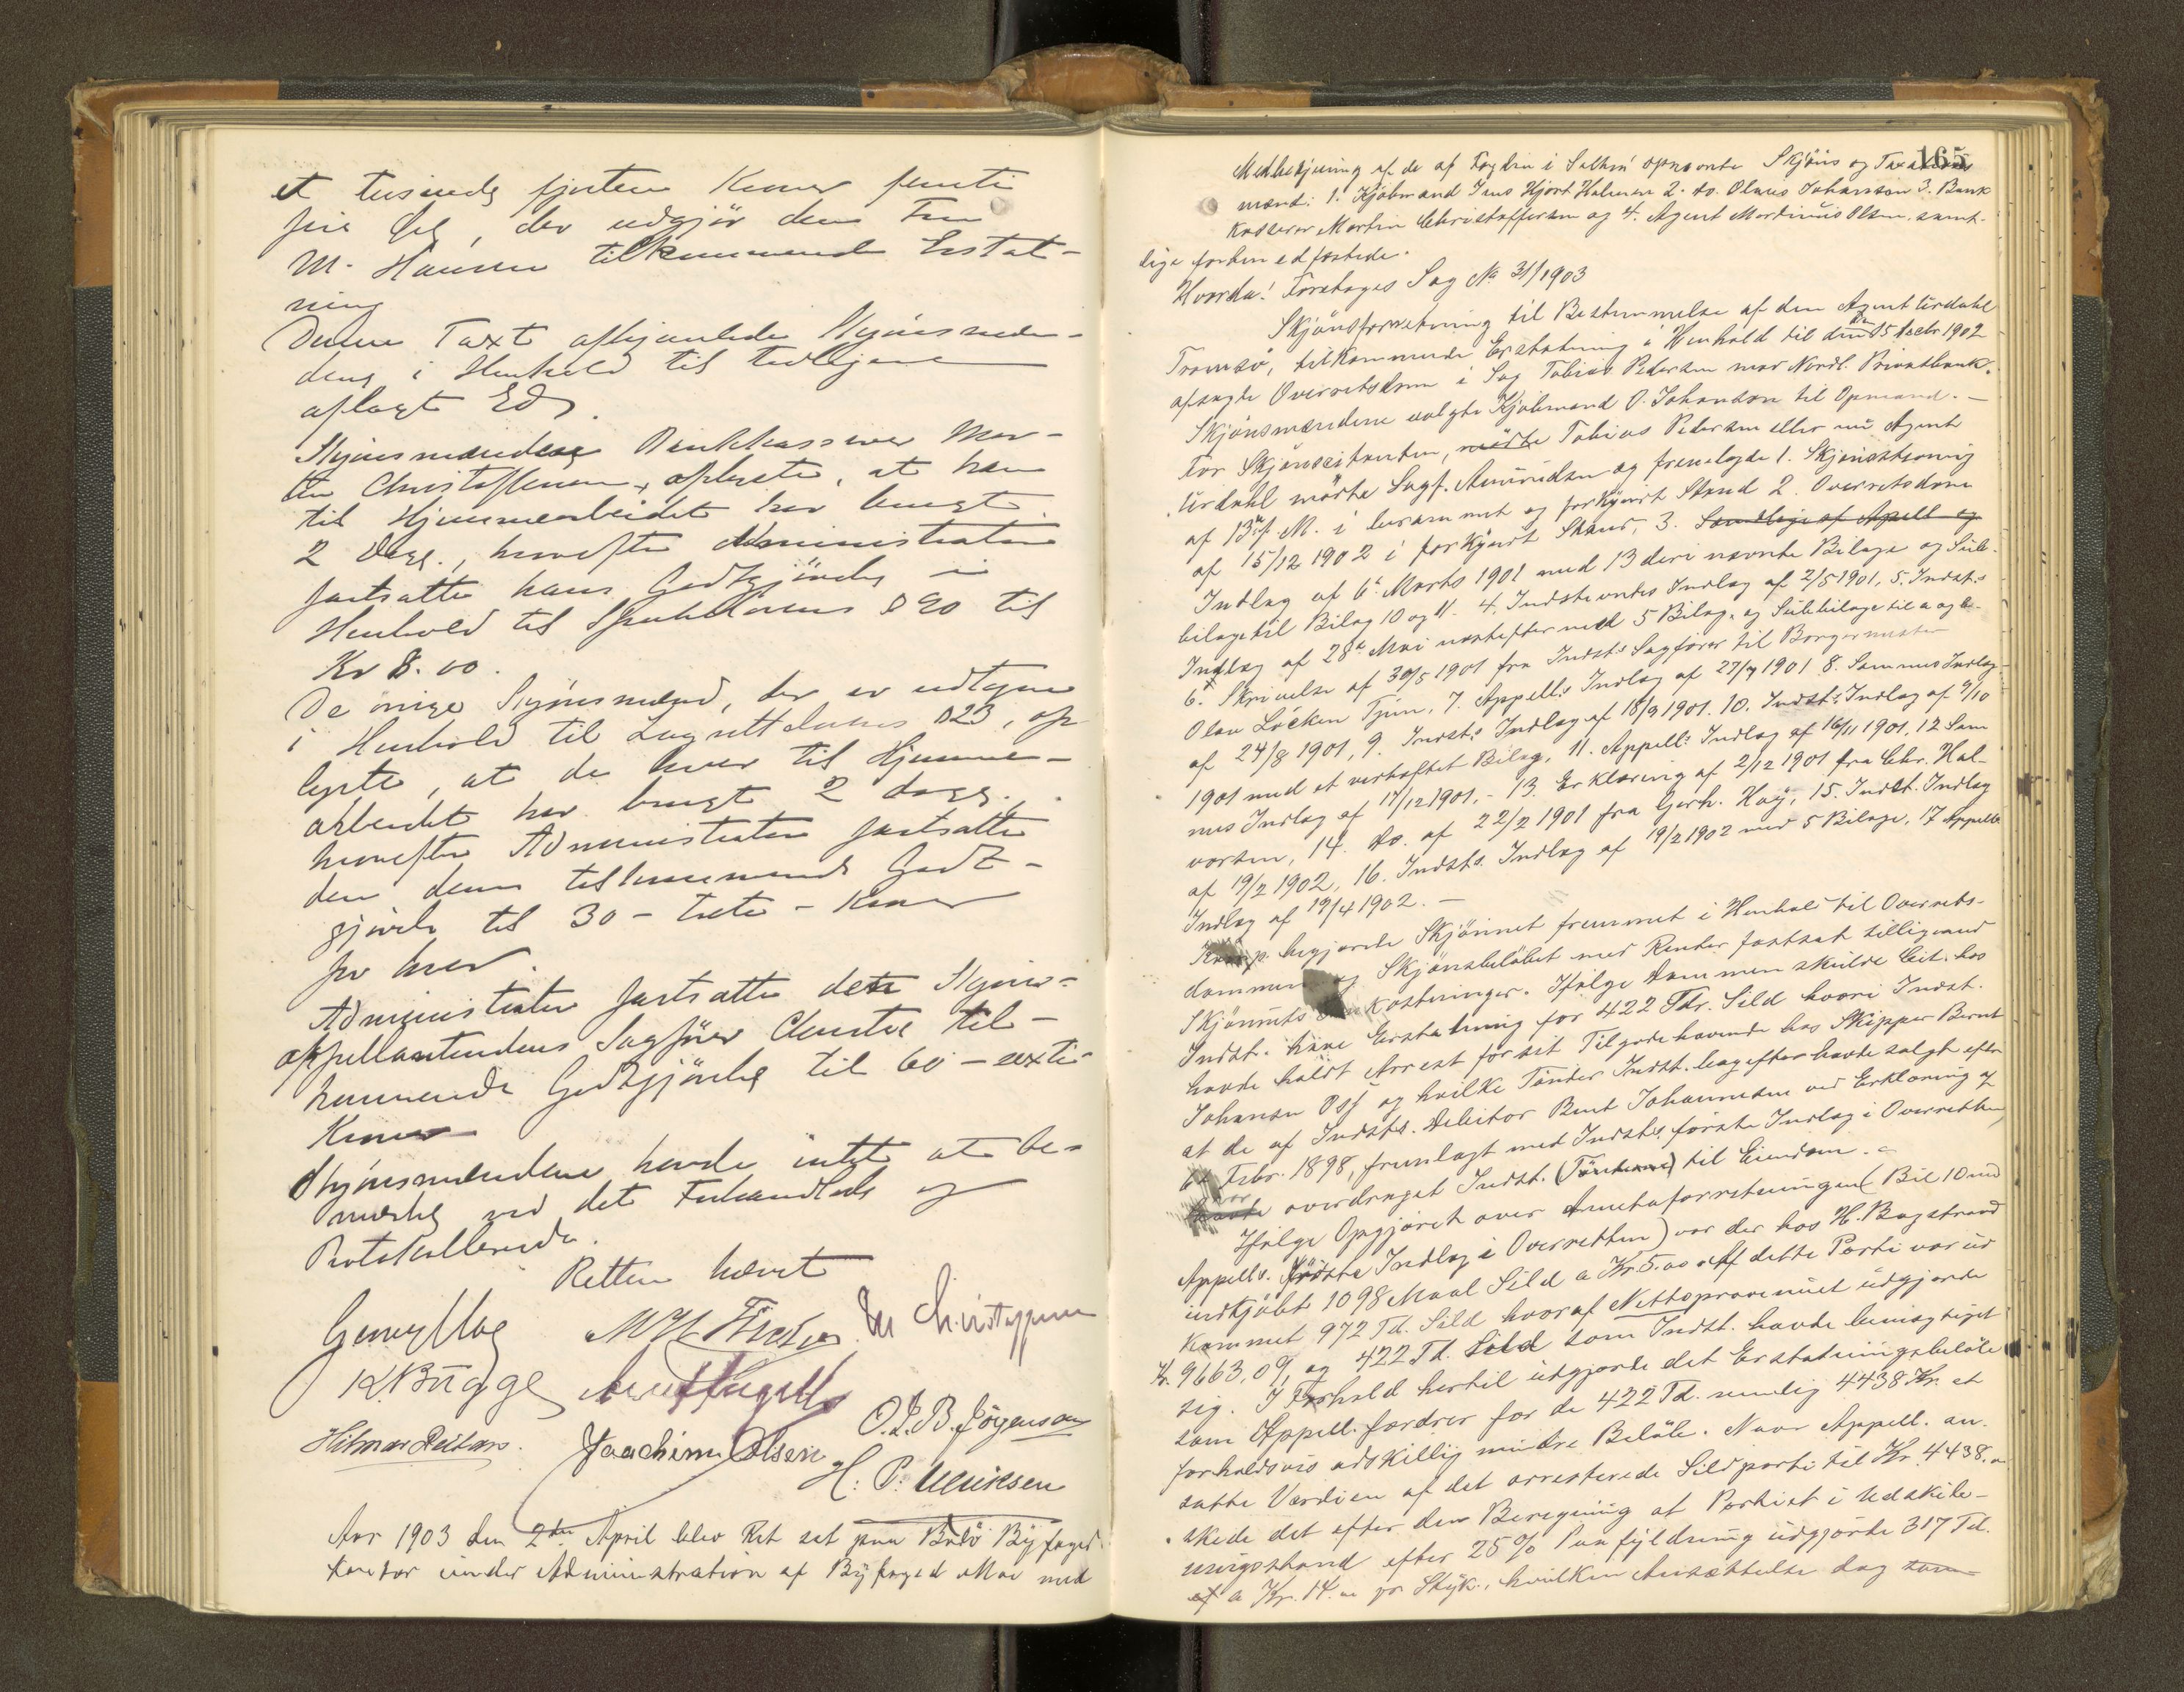 et tusinde fjorten Kroner femti
fire Øre, der udgjør den Fru
M. Hansen tilkommende Erstat-
ning
Denne Taxt afhjemlede Skjønsmæn-
dene i Henhold til tidligere
aflagt Ed.
Skjønsmændene Bankkasserer Mar-
tin Christoffersen, oplyste, at han
til Hjemmearbeidet har brugt
2 Dage, hvorefter Administrator
fastsatte hans Godtgjørelse i
Henhold til Sportellovens § 90 til
Kr 8.00.
De øvrige Skjønsmænd, der er udtagne
i Henhold til Lagrettelovens § 23, op
lyste, at de hver til Hjemme-
arbeidet har brugt 2 dage.
hvorefter Administrator fastsatte
den dem tilkommende Godt-
gjørelse til 30 - treti - Kroner
for hver.
Administrator fastsatte dette Skjøns-
appellantindens Sagfører Christie til-
kommende Godtgjørelse til 60 - sexti
Kroner
Skjønsmændene havde intet at be-
mærke ved det Forhandlede og
Protokollerede.
Retten hævet
Georg Moe M H Fischer M Christoffersen
K. Bugge
O. J. B. Jørgensen
Hilmar Reitan. Joachim Olsen
H. P. Ulriksen
Aar 1903 den 2den April blev Ret sat paa Bodø Byfoged
kontor under Administration af Byfoged Moe med
165
Medbetjening af de af Fogden i Salten opnævnte Skjøns og Taxations
mænd: 1. Kjøbmand Jens Hjort Halmrn 2. do. Olaus Johansen 3. Bank
kasserer Martin Christoffersen og 4. Agent Mordinius Olsen, samt-
lige forhen edfæstede.
Hvorda! Foretages Sag No 31/1903
Skjønsforretning til Bestemmelse af den Agent Urdahl
Tromsø, tilkommende Erstatning i Henhold til den 15 decbr 1902
afsagte Overretsdom i Sag Tobias Pedersen mod Nordl. Privatbank.
Skjønsmændene valgte Kjøbmand O. Johansen til Opmand. -
For Skjønscitanten, mødte Tobias Pedersen eller nu Agent
Urdahl mødte Sagf. Amundsen og fremlagde 1. Skjønsstevning
af 13de f. M. i berammet og forkyndt Stand 2. Overretsdom
af 15/12 1902 i forkyndt Stand, 3. Samtlige af Apell og
Indlæg af 6te Marts 1901 med 13 deri nævnte Bilage og Sub-
bilage til Bilag 10 og 11. 4. Indstevntes Indlæg af 2/5 1901, 5. Indsts
Indlæg af 28de Mai næstefter med 5 Bilag, og Subbilage til a og b.
6. Skrivelse af 30/5 1901 fra Indsts Sagfører til Borgermester
Olav Løcken Tjøm, 7. Appells Indlæg af 27/7 1901 8. Sammes Indlæg
af 24/8 1901, 9. Indsts Indlæg af 18/9 1901. 10. Indsts Indlæg af 9/10
1901 med et vedhæftet Bilag, 11. Appells Indlæg af 16/11 1901, 12 Sam
mes Indlæg af 17/12 1901, - 13. Erklæring af 2/12 1901 fra Chr. Hal-
vorsen, 14. do. af 22/2 1901 fra Gerh. Høy, 15. Indst. Indlæg
af 19/2 1902, 16. Indsts. Indlæg af 19/2 1902 med 5 Bilage, 17 Appells
Indlæg af 19/4 1902. -
begjærede Skjønnet fremmet i Henhold til Overrets-
dommen og Skjønsbeløbet med Renter fastsat tilligemed
Skjønnets Omkostninger. Ifølge Dommen skulde Cit. hos
Indst. have Erstatning for 422 Tdr. Sild hvori Indst.
havde holdt Arrest for sit Tilgodehavende hos Skipper Bernt
Johansen Oss og hvilke Tønder Indst. bagefter havde solgt efter
at de af Indsts. Debitor Bernt Johannesen ved Erklæring af
Febr. 1898, fremlagt med Indsts. første Indlæg i Overretten
overdraget Indst. (Tønderne) til Eiendom. -
Ifølge Opgjøret over Arrestforretningen (Bil 10 med
Appells. første Indlæg i Overretten) var der hos H. Bagstrand
indkjøbt 1098 Maal Sild a Kr. 5.00. Af dette Parti var ud
kommet 972 Td. Sild hvoraf Nettoprovenuet udgjorde
Kr. 9663,09, og 422 Td. Sild som Indst. havde bemægtiget
sig. I Forhold hertil udgjorde det Erstatningsbeløb
som Appell. fordrer for de 422 Td. nemlig 4438 Kr. et
forholdsvis adskillig mindre Beløb. Naar Appell. an-
satte Værdien af det arresterede Sildparti til Kr. 4438.-
skede det efter den Beregning at Partiet i Udskib-
ningsstand efter 25% Paafyldning udgjorde 317 Td.
af a Kr. 14.- pr Styk., hvilken Ansættelse dog som